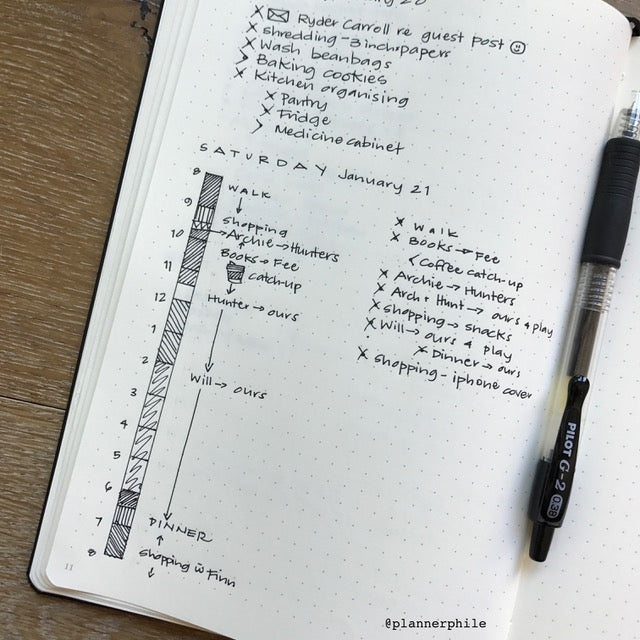 Ryder Carroll re guest post
shredding - 3 inch papers
Wash beanbags
Baking cookies
Kitchen organising
Pantry
Fridge
Medicine cabinet
SATURDAY January 21
8
9
10
11
12
1
2
3
4
5
6
7
8
WALK
shopping
Archie → Hunters
Books → Fee
catch-up
Hunter → ours
Will → ours
DINNER
shopping w Finn
Walk
Books → Fee
Coffee catch-up
Archie → Hunters
Arch + Hunt → ours & play
shopping → snacks
Will → ours & play
Dinner → ours
shopping - iphone cover
11
PILOT G-2
@plannerphile